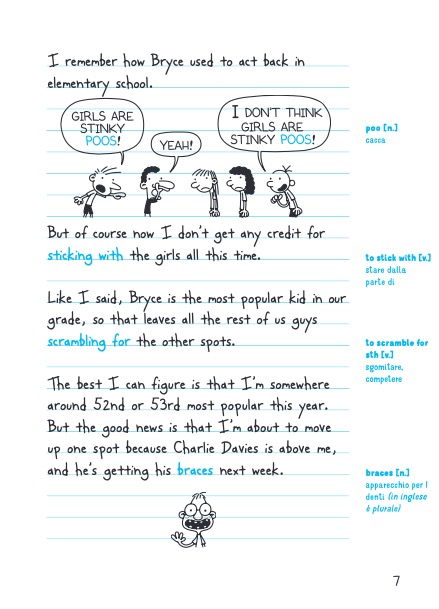 I remember how Bryce used to act back in
elementary school.
GIRLS ARE
STINKY
POOS!
YEAH!
I DON'T THINK
GIRLS ARE
STINKY POOS!
poo [n.]
cacca
But of course now I don't get any credit for
sticking with the girls all this time.
to stick with [v.]
stare dalla
parte di
Like I said, Bryce is the most popular kid in our
grade, so that leaves all the rest of us guys
scrambling for the other spots.
to scramble for
sth [v.]
sgomitare,
competere
The best I can figure is that I'm somewhere
around 52nd or 53rd most popular this year.
But the good news is that I'm about to move
up one spot because Charlie Davies is above me,
and he's getting his braces next week.
braces [n.]
apparecchio per i
denti (in inglese
è plurale)
7